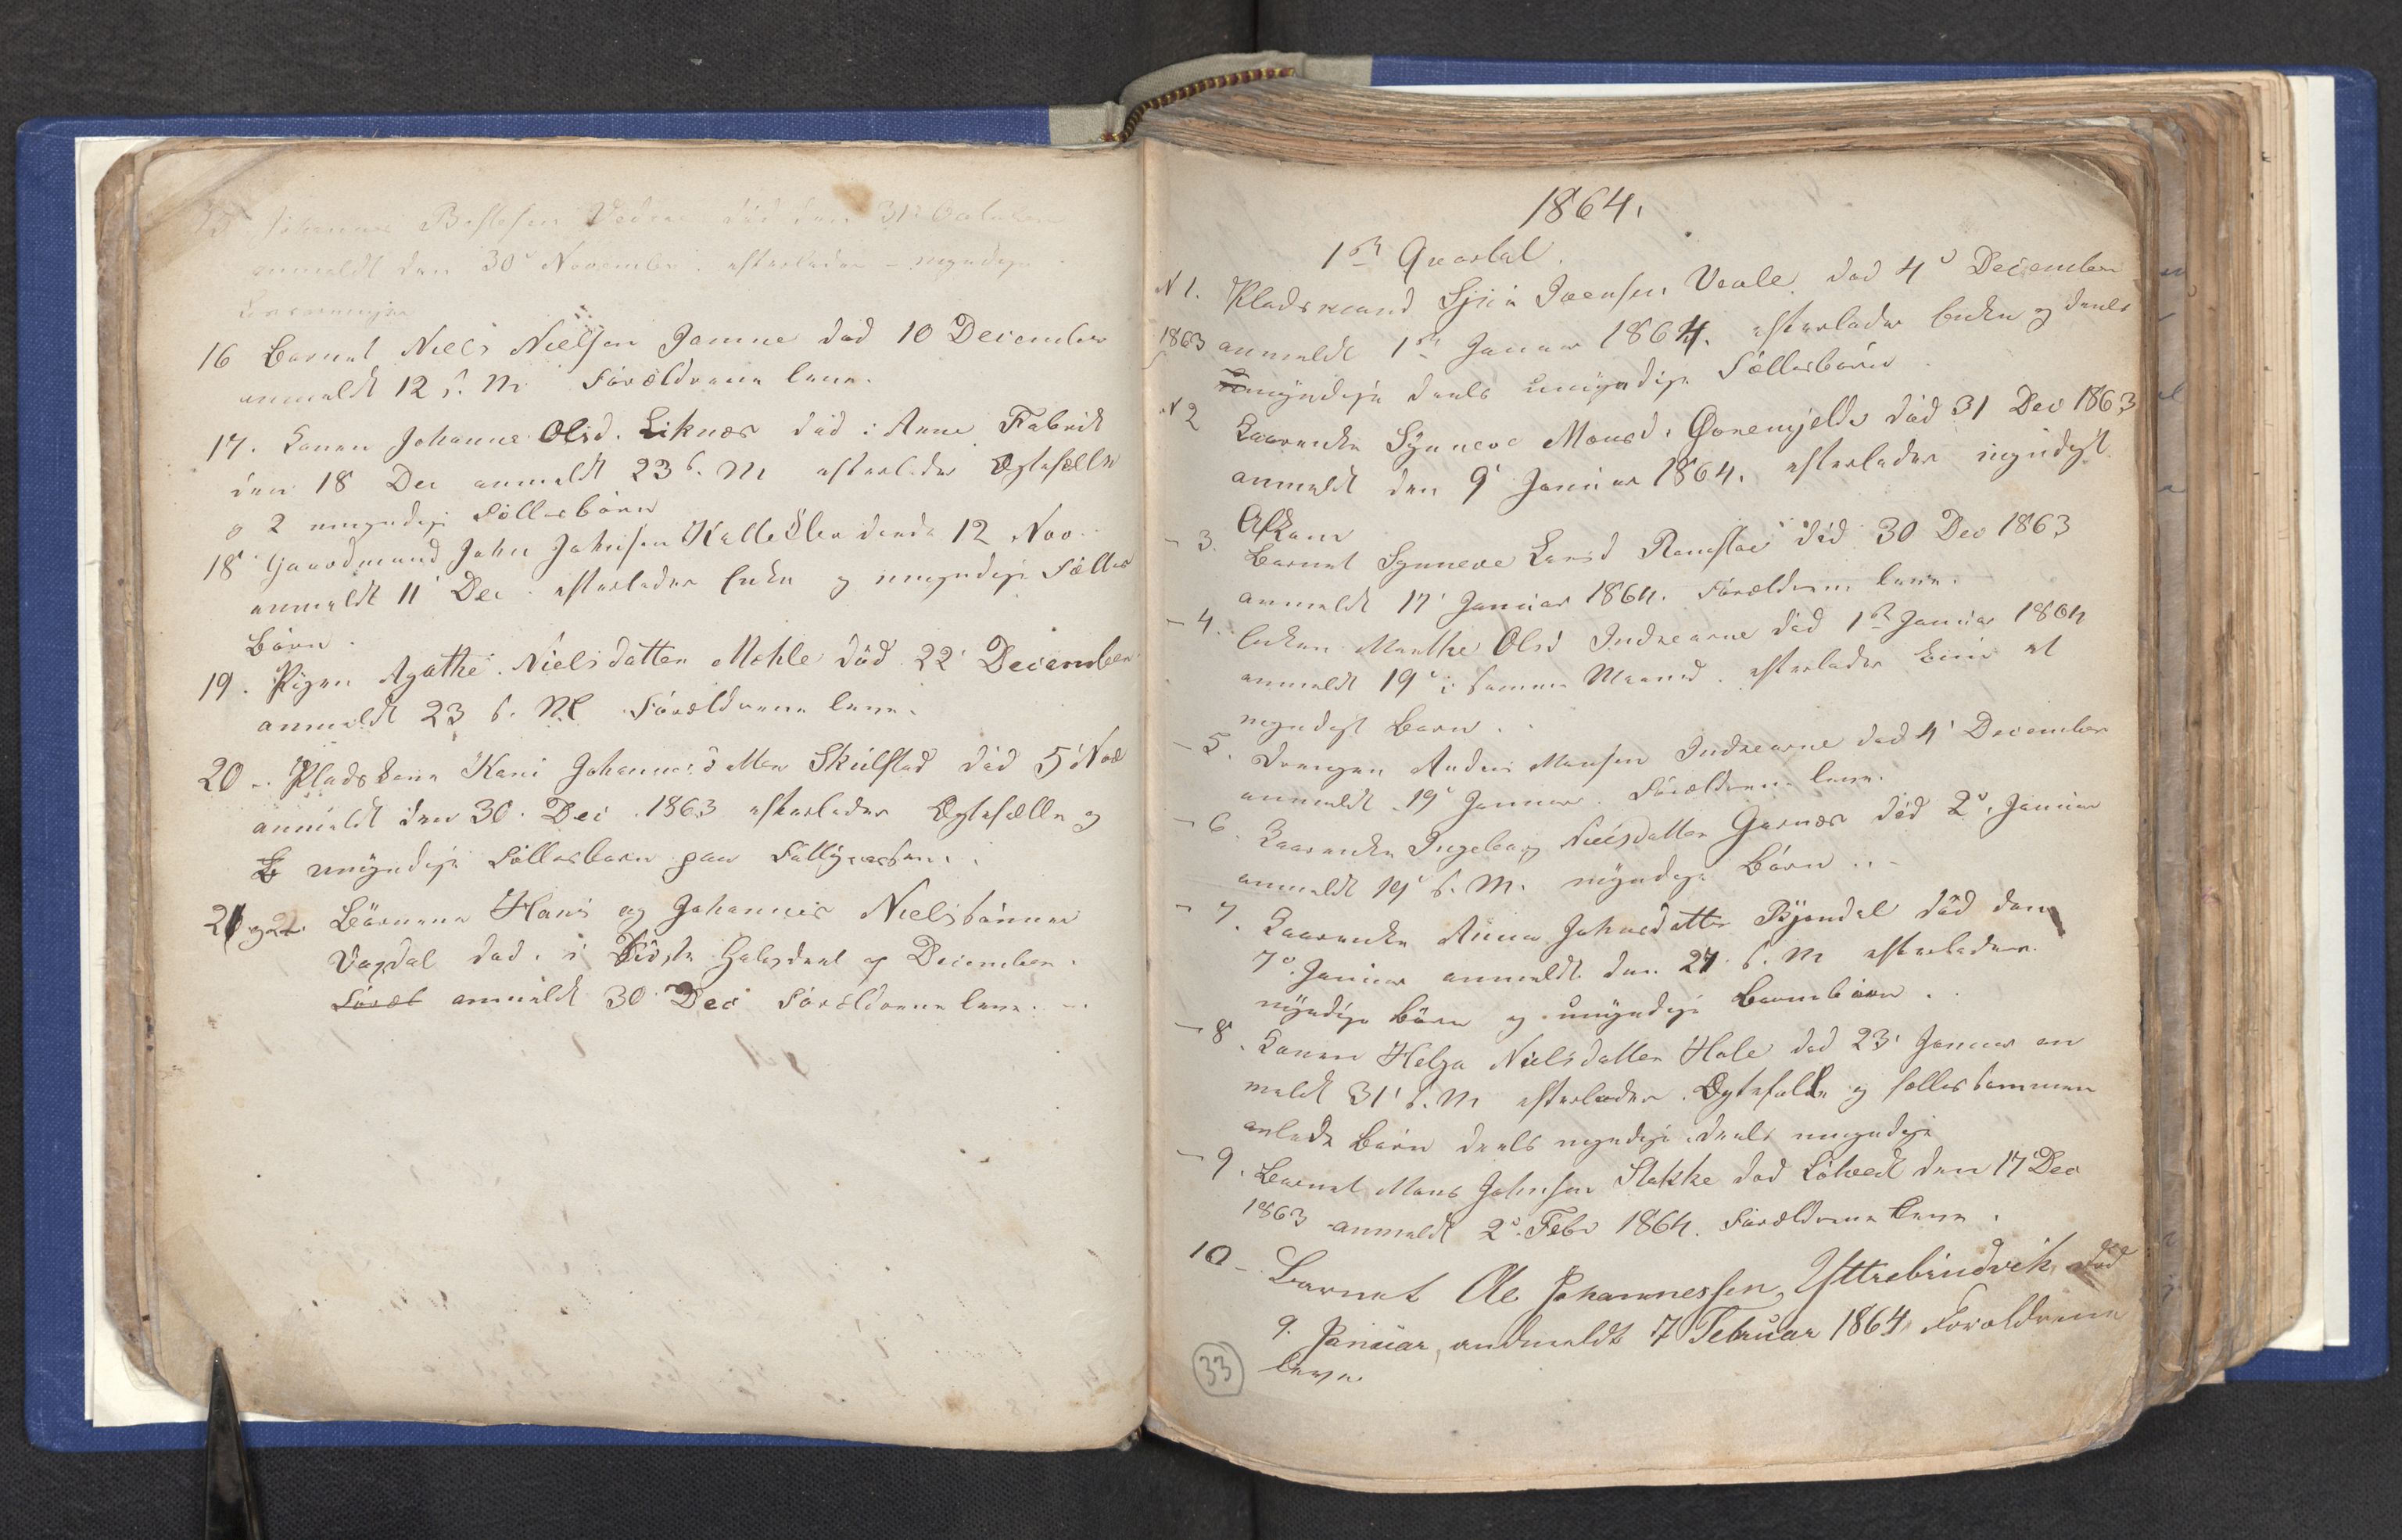 15 Johannes Vedeae død den 31te October
anmeldt den 30' November. efterlader – myndige
Livsarvinger
16 Barnet Niels Nielsen Jamne død 10 December
anmeldt 12 s. M. Forældrene leve.
17. Konen Johanne Olsd. Liknæs död i Arne Fabrik
den 18 Dec anmeldt 23 s. M efterlader Ægtefælle
og 2 umyndige Fællesbörn
18 Gaardmand John Johnsen døde 12 Nov
anmeldt 11' Dec. efterlader Enke og umyndige Fælles
Börn.
19. Pigen Agathe Nielsdatter Mehle död 22' December
anmeldt 23 s. M Forældrene leve.
20 – Pladskone Kari Johannesdatter Skulstad död 5' Nov
anmeldt den 30. Dec. 1863 efterlader Ægtefælle og
umyndige Fællesbarn paa
21 og 22. Börnene Hans og Johannes Nielssönner
Vagdal død i sidste Halvdeel af December.
Foræl anmeldt 30 Dec Forældrene leve. –
1864.
1ste Qvartal.
N 1. Pladsmand Veale. död 4' December
1863 anmeldt 1ste Januar 1864. efterlader Enke og deels
myndige deels umyndige Fællesbörn
N 2 Kaarenke Synneve Monsd. död 31 Dec 1863
anmeldt den 9' Januar 1864. efterlader myndigt
Afkom
– 3. Barnet Synneve Larsd död 30 Dec 1863
anmeldt 17' Januar 1864. Forældrene leve.
– 4. Enken Marthe Olsd Indrearne död 1ste Januar 1864
anmeldt 19' i samme Maaned. efterlader kun et
myndigt Barn.
– 5. Drengen Anders Monsen Indrearne død 4' December
anmeldt 19' Januar. Forældrene leve.
– 6. Kaarenke Ingeborg Nielsdatter Garnæs död 2'. Januar
anmeldt 19' s. M. myndige Börn. –
– 7. Kaarenke Anna Johnsdatter Bjøndal död den
7'. Januar anmeldt den 27 s. M efterlader
myndige Börn og umyndige Barnebörn.
– 8. Konen Helga Nielsdatter Hole död 23' Januar an
meldt 31' s. M efterlader Ægtefælle og fælles sammen
avlede Börn deels myndige deels umyndige
– 9. Barnet Mons Johnsen Stakke død den 17 Dec
1863 anmeldt 2'. Febr 1864. Forældrene leve.
10 – Barnet Ole Johannessen, Yttrebrudvik, död
9. Januar, anmeldt 7 Februar 1864, Forældrene
leve.
33